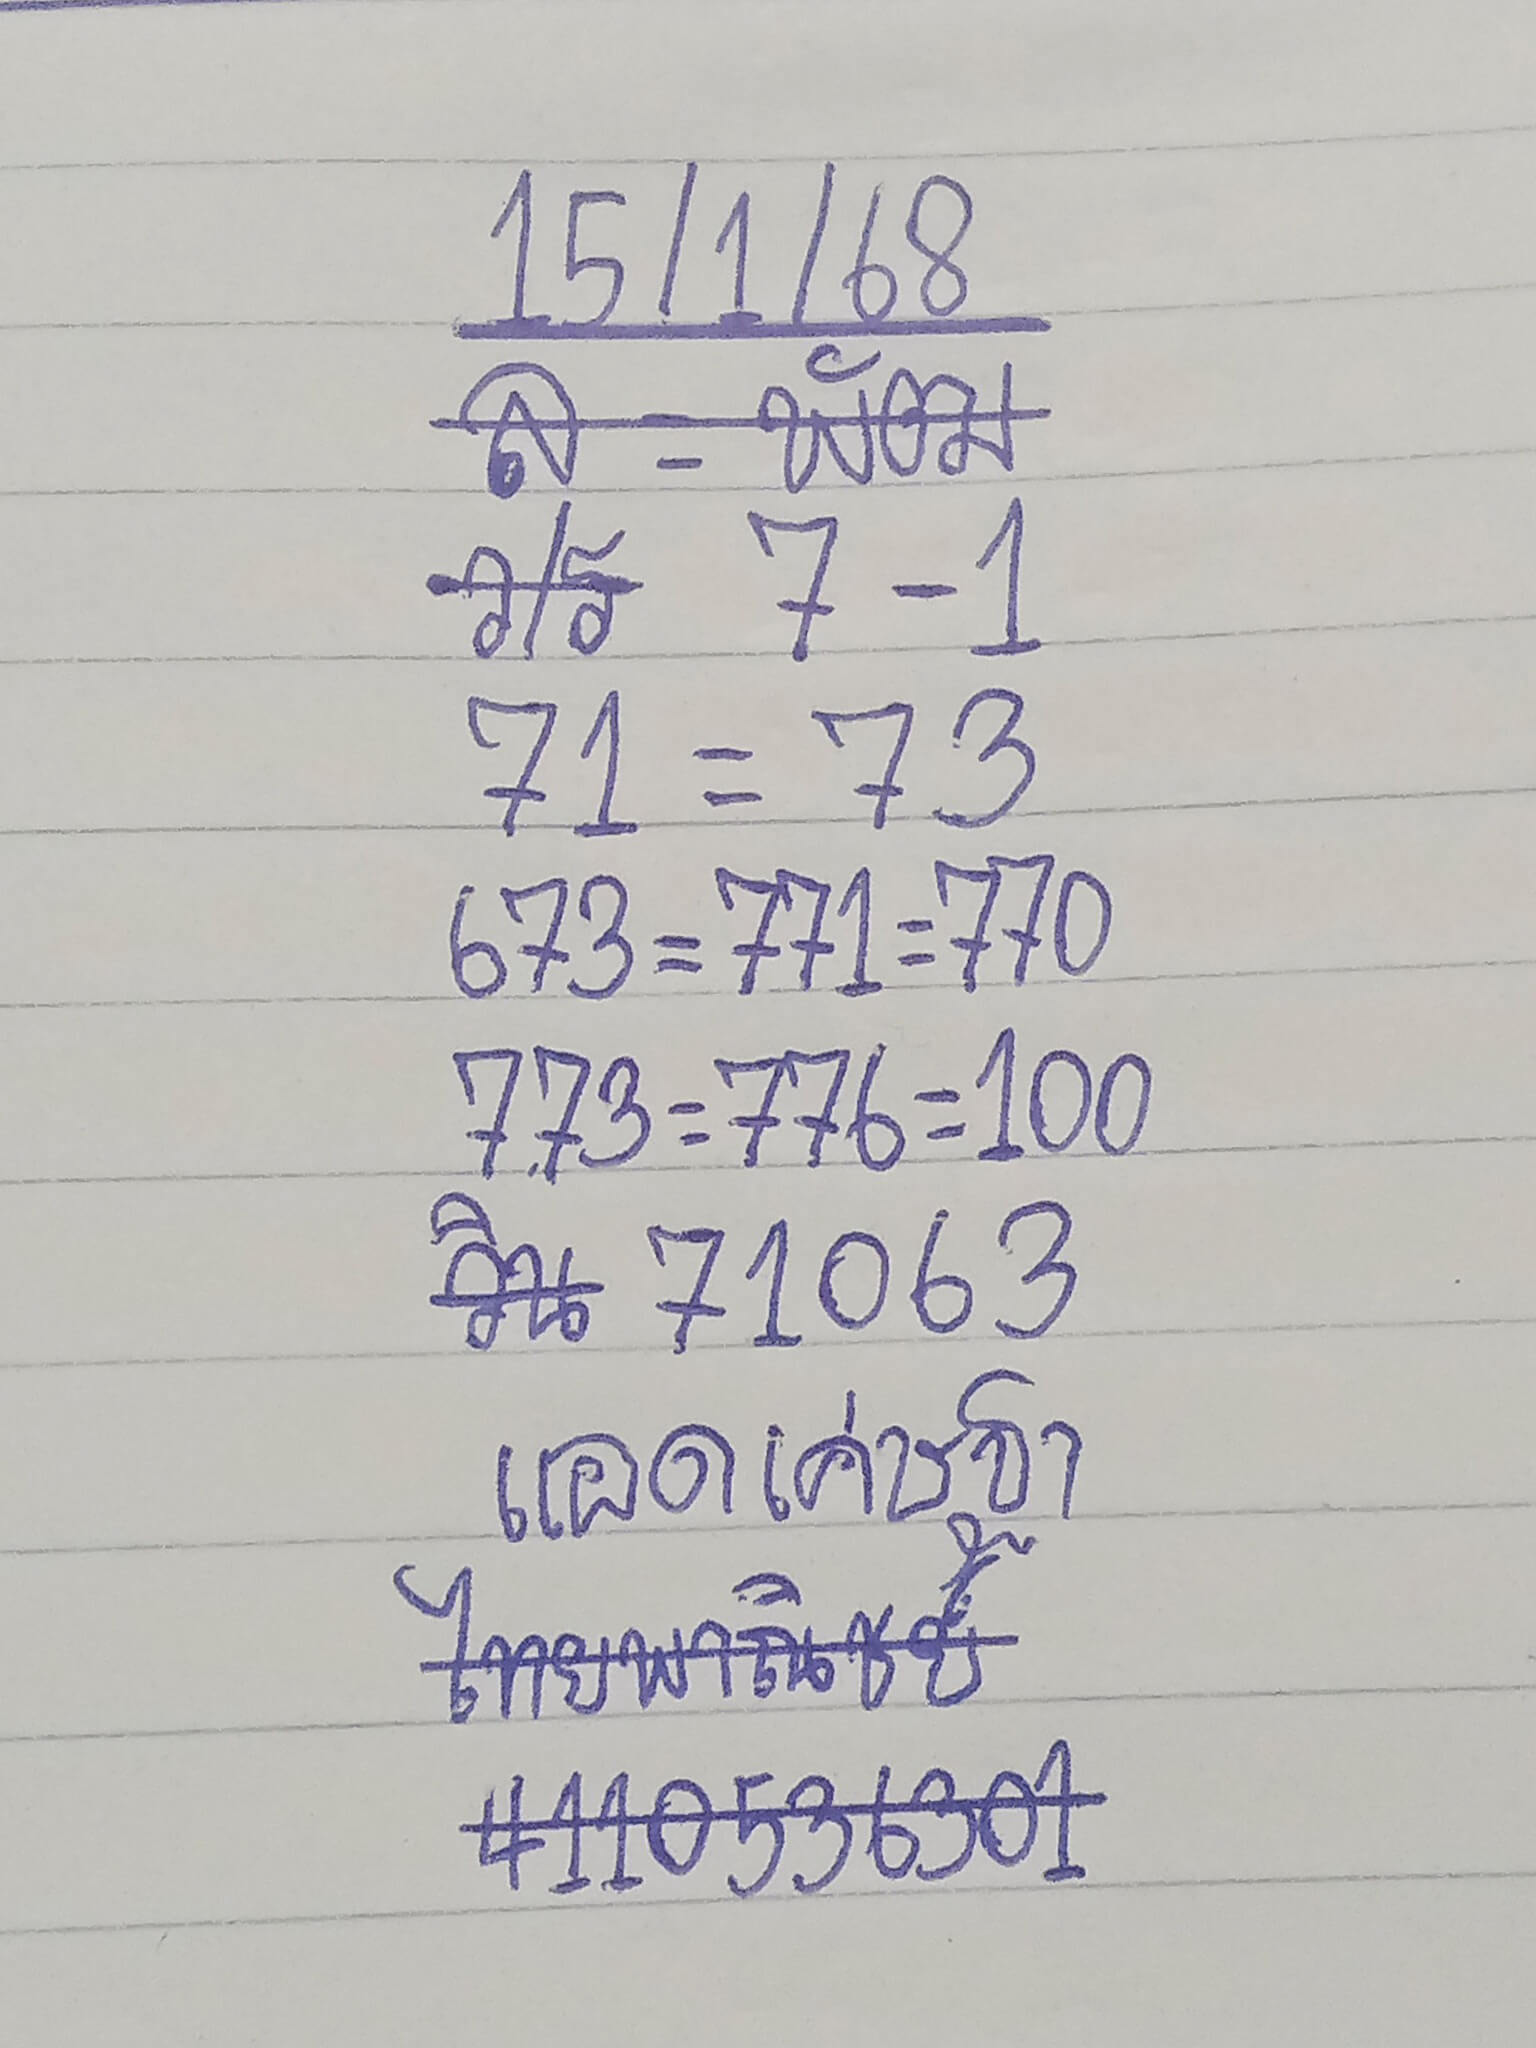 15/1/68
ล = พังงม
ว/ธ 7-1
71 = 73
673=771=770
773=776=100
วิน 71063
แอดเค่าช่จา
ไทยพาณิชย์
4110536301